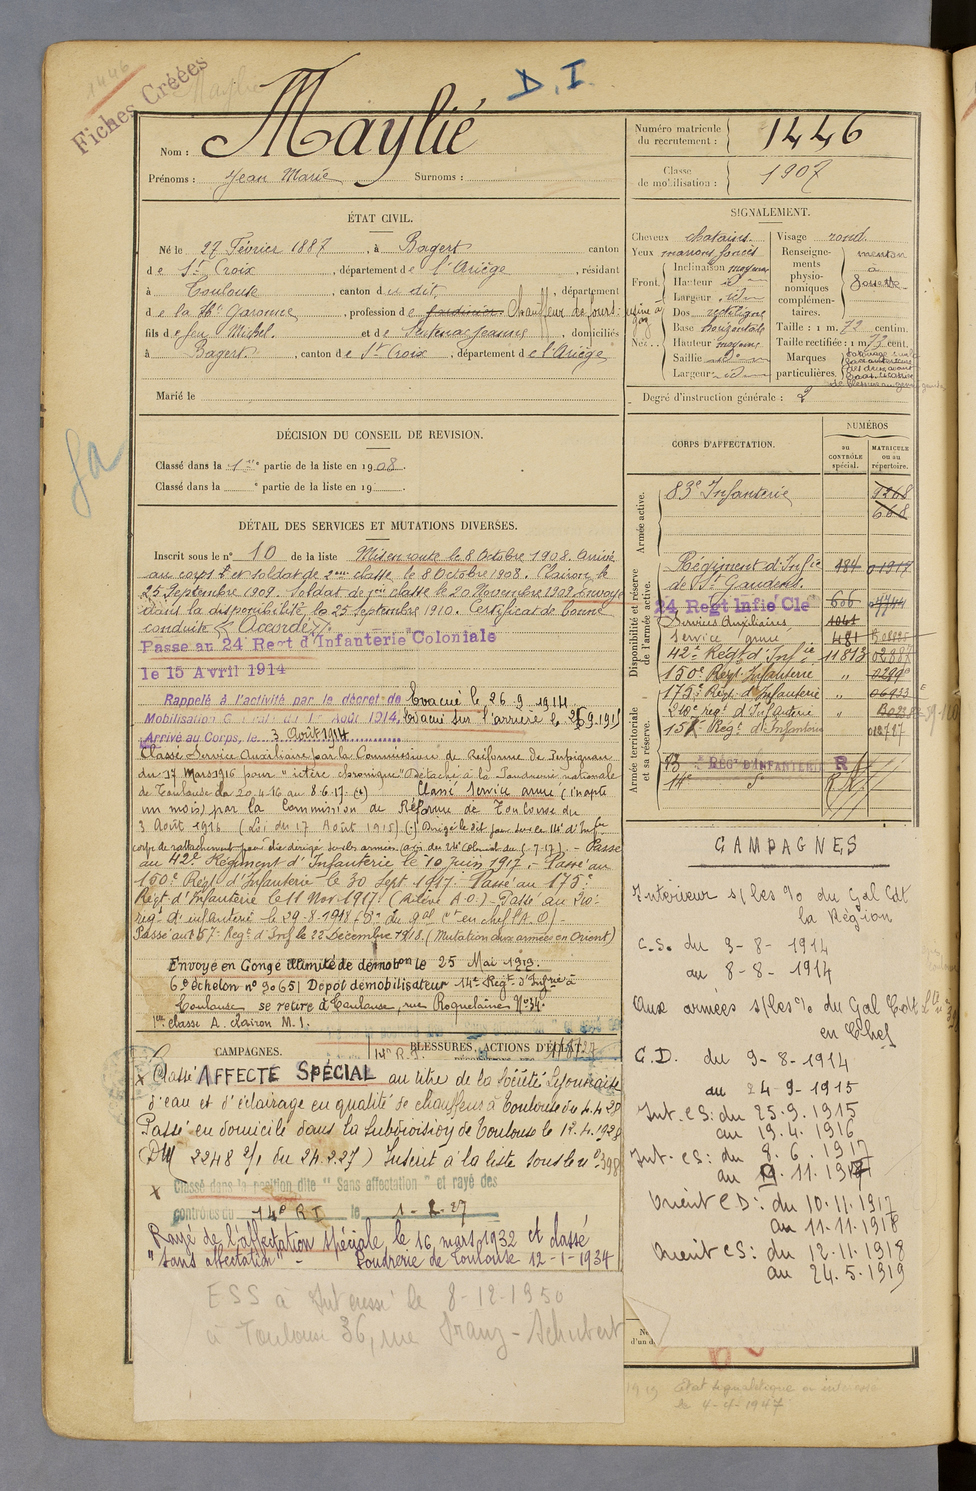 1446
Fiches Créées
D.I.
Nom : Maylié
Prénoms : Jean Marie Surnoms :
Numéro matricule du recrutement : 1446
Classe de mobilisation : 1907
ÉTAT CIVIL.
Né le 27 Février 1887, à Bagert canton
de St Croix, département de l'Ariège, résidant
à Toulouse, canton du dit, département
de la Hte Garonne, profession de jardinier Chauffeur de fours usine à gaz
fils de feu Michel et de Sentenac Jeanne, domiciliés
à Bagert, canton de St Croix, département de l'Ariège
Marié le
SIGNALEMENT.
Cheveux chatains.
Yeux marrons foncés
Front. Inclinaison moyen
Hauteur id
Largeur id
Nez. Dos rectiligne
Base horizontale
Hauteur moyenne
Saillie do
Largeur id
Visage rond
Renseignements physionomiques complémentaires. menton à fossette
Taille : 1 m. 72 centim.
Taille rectifiée : 1 m. 72 cent.
Marques particulières.
Degré d'instruction générale : 2
DÉCISION DU CONSEIL DE REVISION.
Classé dans la 1re partie de la liste en 1908.
Classé dans la e partie de la liste en 19
CORPS D'AFFECTATION.
NUMÉROS
au CONTRÔLE spécial.
MATRICULE ou au répertoire.
Armée active.
83e Infanterie 9268
668
Disponibilité et réserve de l'armée active.
Régiment d'Infie de St Gaudens. 484 01917
24 Regt Infie Cle 606
Services Auxiliaires
Service armé 481
42e Régt d'Infie 11813
150e Régt Infanterie "
175e Régt d'Infanterie " 06933
Armée territoriale et sa réserve.
210e régt d'Infanterie "
157e Régt d'Infanterie
83e RÉGt D'INFANTERIE R
14e d°
DÉTAIL DES SERVICES ET MUTATIONS DIVERSES.
Inscrit sous le n° 10 de la liste Mis en route le 8 Octobre 1908. Arrivé
au corps et soldat de 2eme classe le 8 Octobre 1908. Clairon le
25 Septembre 1909. Soldat de 1ere classe le 20 Novembre 1909. Envoyé
dans la disponibilité le 25 Septembre 1910. Certificat de bonne
conduite "Accordé".
Passe au 24e Regt d'Infanterie Coloniale
le 15 Avril 1914
Rappelé à l'activité par le décret de Mobilisation Générale du 1er Août 1914. Evacué le 26.9.1914.
Evacué sur l'arrière le 25.9.1915
Arrivé au Corps, le 3 Août 1914
Classé Service Auxiliaire par la Commission de Réforme de Perpignan
du 17 Mars 1916 pour "ictère chronique" Détaché à la Poudrerie nationale
de Toulouse du 20.4.16 au 8.6.17. Classé Service armé (inapte
un mois) par la Commission de Réforme de Toulouse du
3 Août 1916 (Loi du 17 Août 1915) Dirigé le dit jour sur le 14e d'Infie
corps de rattachement pour être dirigé sur les armées - Passé
au 42e Régiment d'Infanterie le 10 juin 1917. - Passé au
150e Régt d'Infanterie le 30 Sept 1917. Passé au 175e
Régt d'Infanterie le 11 Nov 1917. Passé au 210e
régt d'infanterie le 29-8-1918
Passé au 157e Regt d'Inf le 22 Décembre 1918. (Mutation aux armées en Orient)
Envoyé en Congé illimité de démobon le 25 Mai 1919.
6e échelon n° 90651 Dépôt démobilisateur 14e Regt d'Infrie à
Toulouse se retire à Toulouse, rue Roquelaine N° 34
1ere classe A. clairon M. I.
CAMPAGNES.
BLESSURES, ACTIONS D'ÉCLAT
Classé AFFECTÉ SPÉCIAL au titre de la Société Lyonnaise
d'eau et d'éclairage en qualité de chauffeur à Toulouse du 4.4.28
Passé en domicile dans la subdivision de Toulouse le 12.4.1928
(DM 2248 2/1 du 24.2.27) Inscrit à la liste sous le n° 398
Classé dans la position dite " Sans affectation " et rayé des
contrôles du 14e R I le 1-2-27
Rayé de l'affectation spéciale le 16 mars 1932 et classé
"sans affectation" - Poudrerie de Toulouse 12-1-1934
ESS à Intéressé le 8-12-1950
à Toulouse 36, rue Franz-Schubert
CAMPAGNES
Intérieur s/les % du Gal Cdt
la Région
C.S. du 3-8-1914
au 8-8-1914
Aux armées s/les % du Gal Cdt
en Chef
C.D. du 9-8-1914
au 24-9-1915
Int. CS: du 25.9.1915
au 19.4.1916
Int. CS: du 8.6.1917
au 9.11.1917
Orient CD: du 10.11.1917
au 11.11.1918
Orient CS: du 12.11.1918
au 24.5.1919
le 4-4-1947